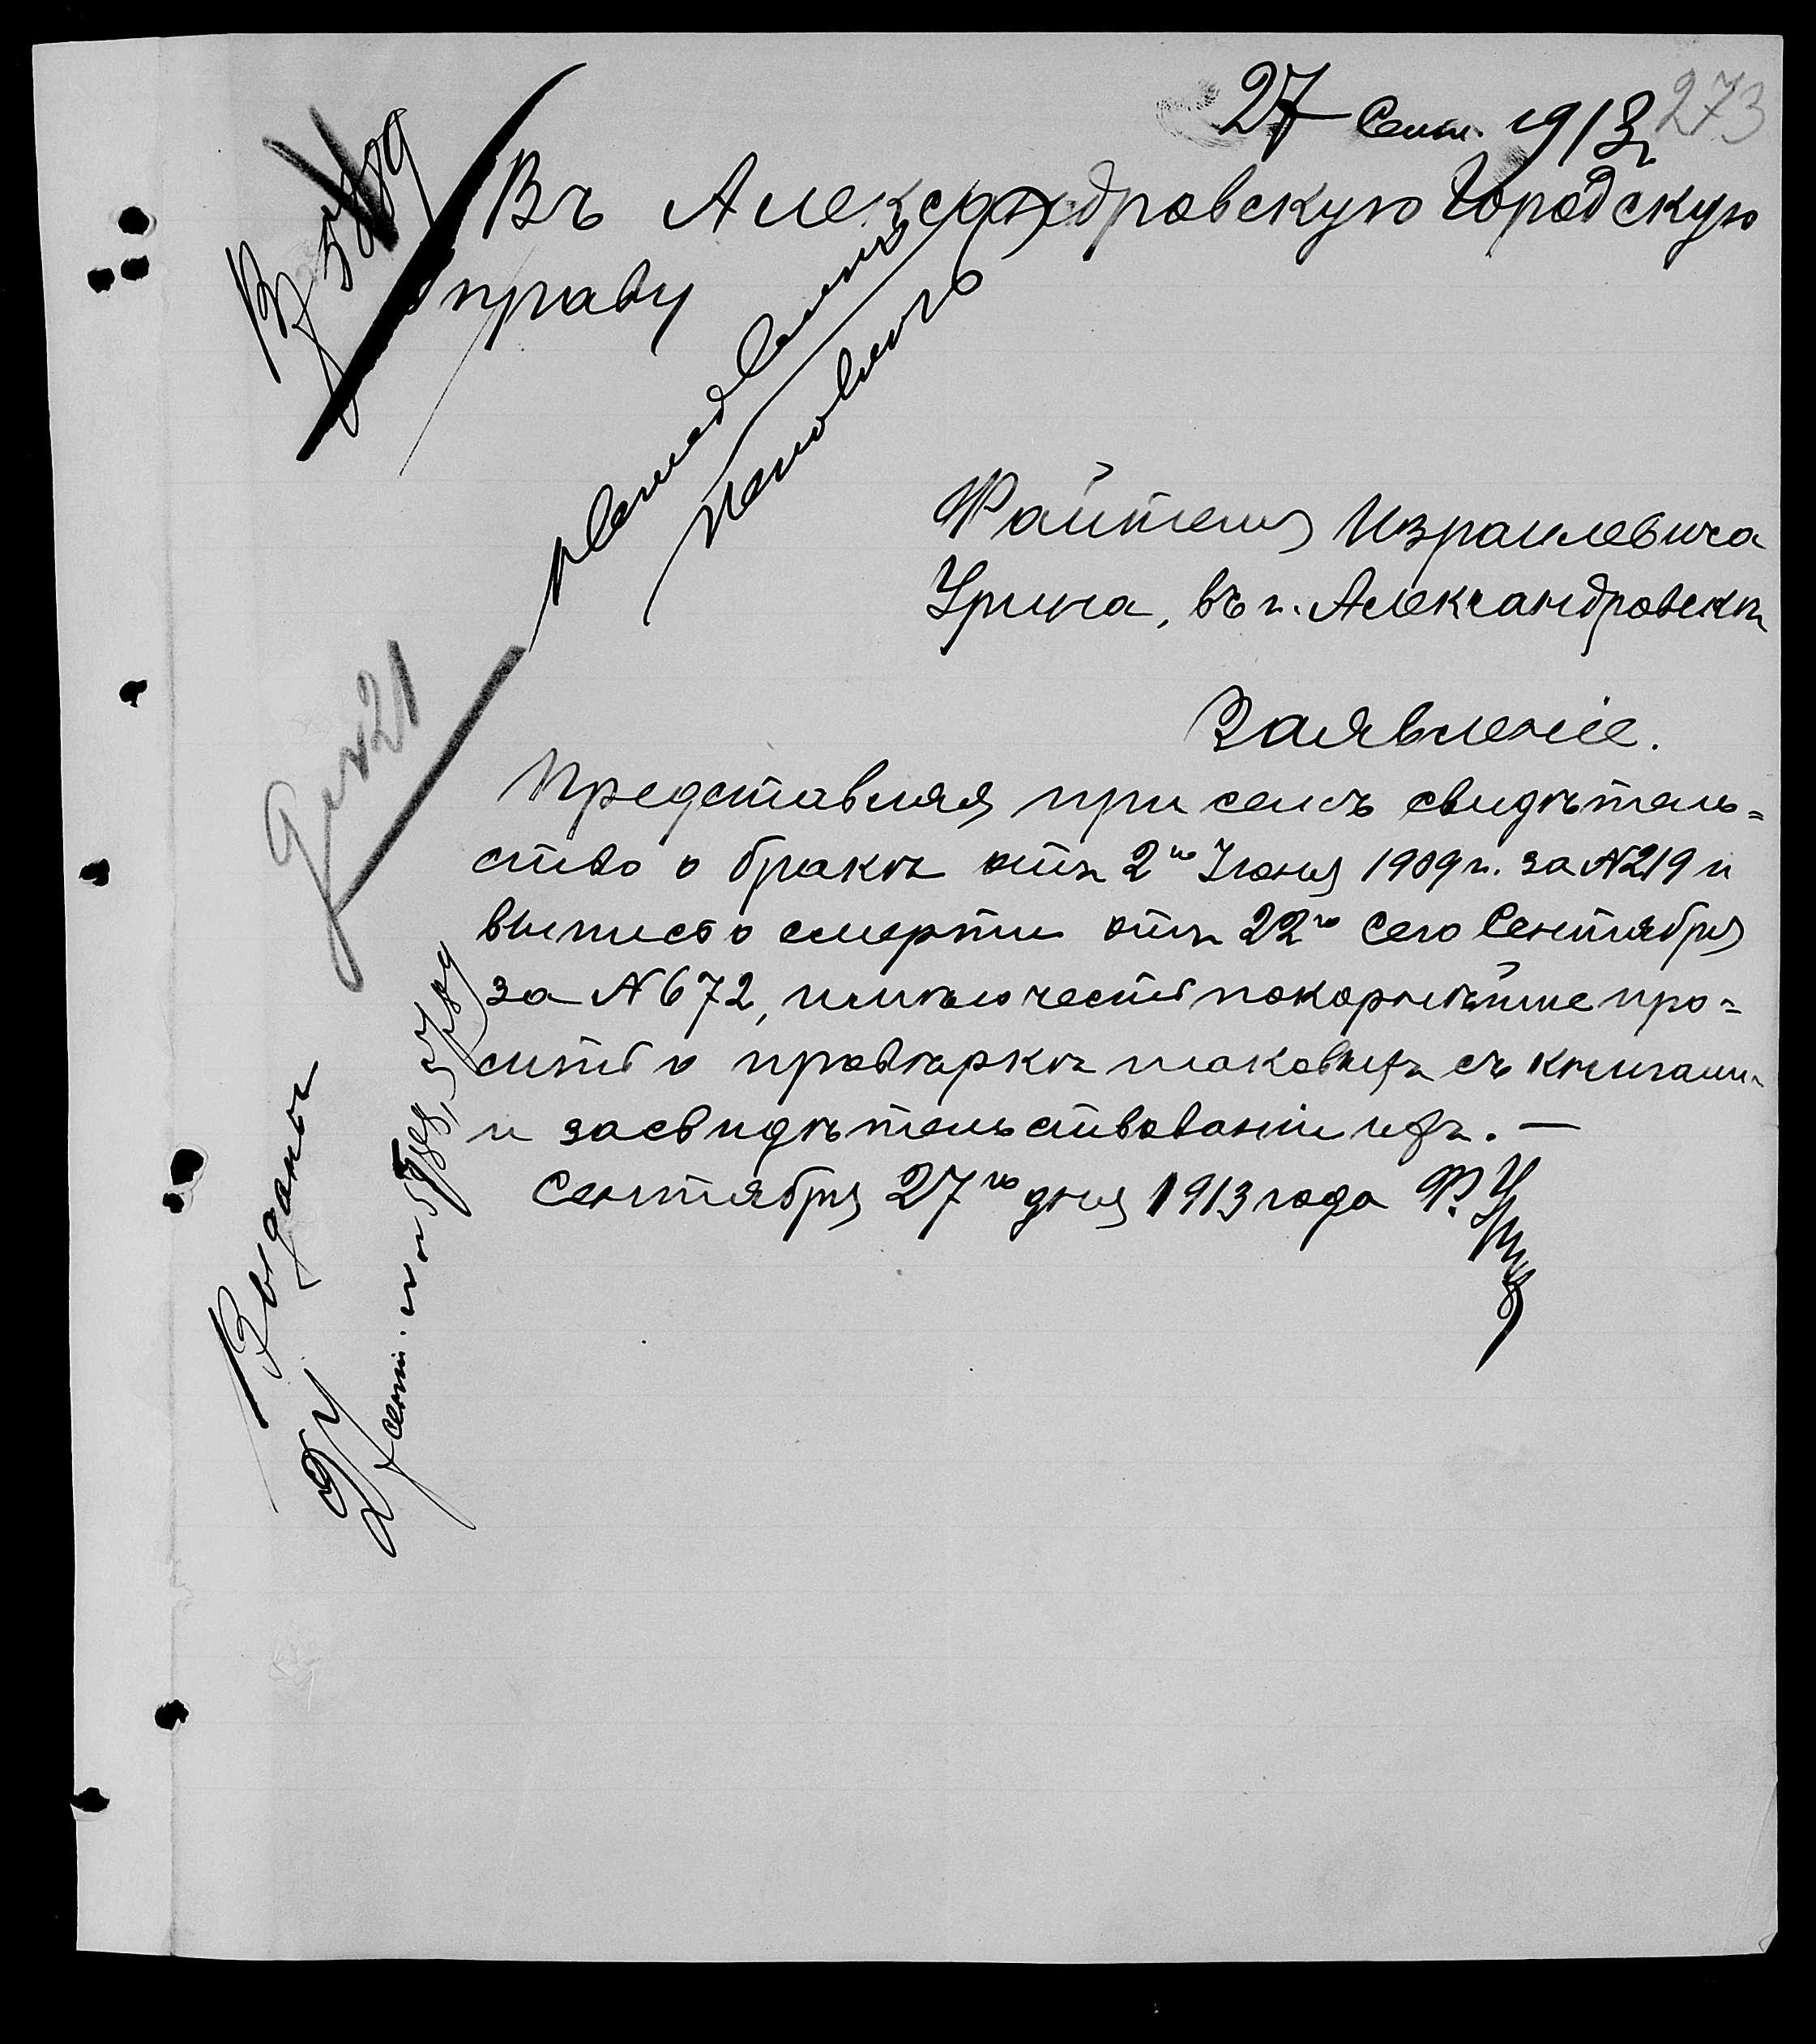 27 Сент. 1913 г.
273
Въ Александровскую Городскую
Управу
Файтеля Израилевича
Урина, въ г. Александровскѣ
Заявленіе.
Представляя при семъ свидѣтель=
ство о бракѣ отъ 2го Іюня 1909 г. за № 219 и
выпись о смерти отъ 22го сего Сентября
за № 672, имѣю честь покорнѣйше про=
сить о провѣркѣ таковыхъ съ книгами
и засвидѣтельствованіи ихъ. —
Сентября 27го дня 1913 года Ф. Урин
Выданы
27 сент.